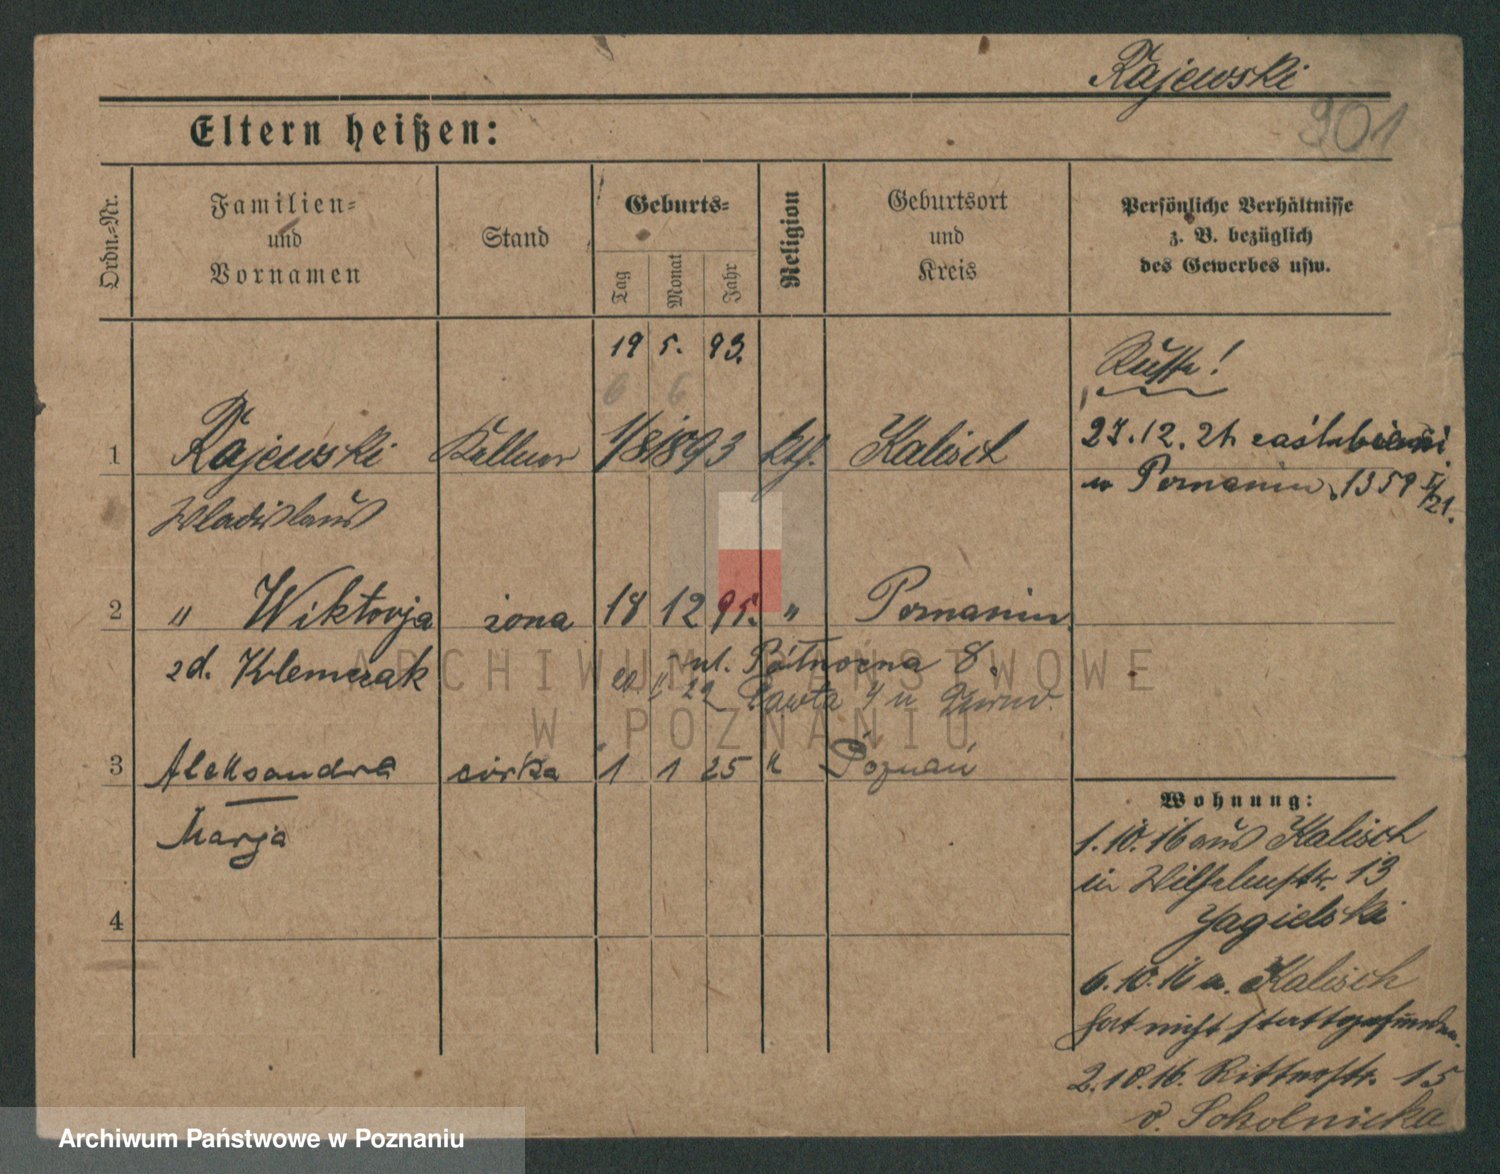 Rajewski
901
Eltern heißen:
Ordn.-Nr.
Familien=
und
Vornamen
Stand
Geburts=
Tag
Monat
Jahr
Religion
Geburtsort
und
Kreis
Persönliche Verhältnisse
z. B. bezüglich
des Gewerbes usw.
19 5. 93.
6 6
Russe!
1 Rajewski Kellner 1/8 1893 kth. Kalisch
27.12.21 zaślubieni
w Poznaniu, 1359 IV/21.
Wladislaus
2 " Wiktorja żona 18 12 95. " Poznaniu
zd. Klemczak
ul. Północna 8.
22 4 u
3 Aleksandra córka 1 1 25 " Poznań
Marja
4
Wohnung:
1.10.16 aus Kalisch
in Wilhelmstr. 13
Jagielski
6.10.16 n. Kalisch
hat nicht stattgefunden.
2.10.16. Ritterstr. 15
b. Sokolnicka
ARCHIWUM PAŃSTWOWE
W POZNANIU
Archiwum Państwowe w Poznaniu